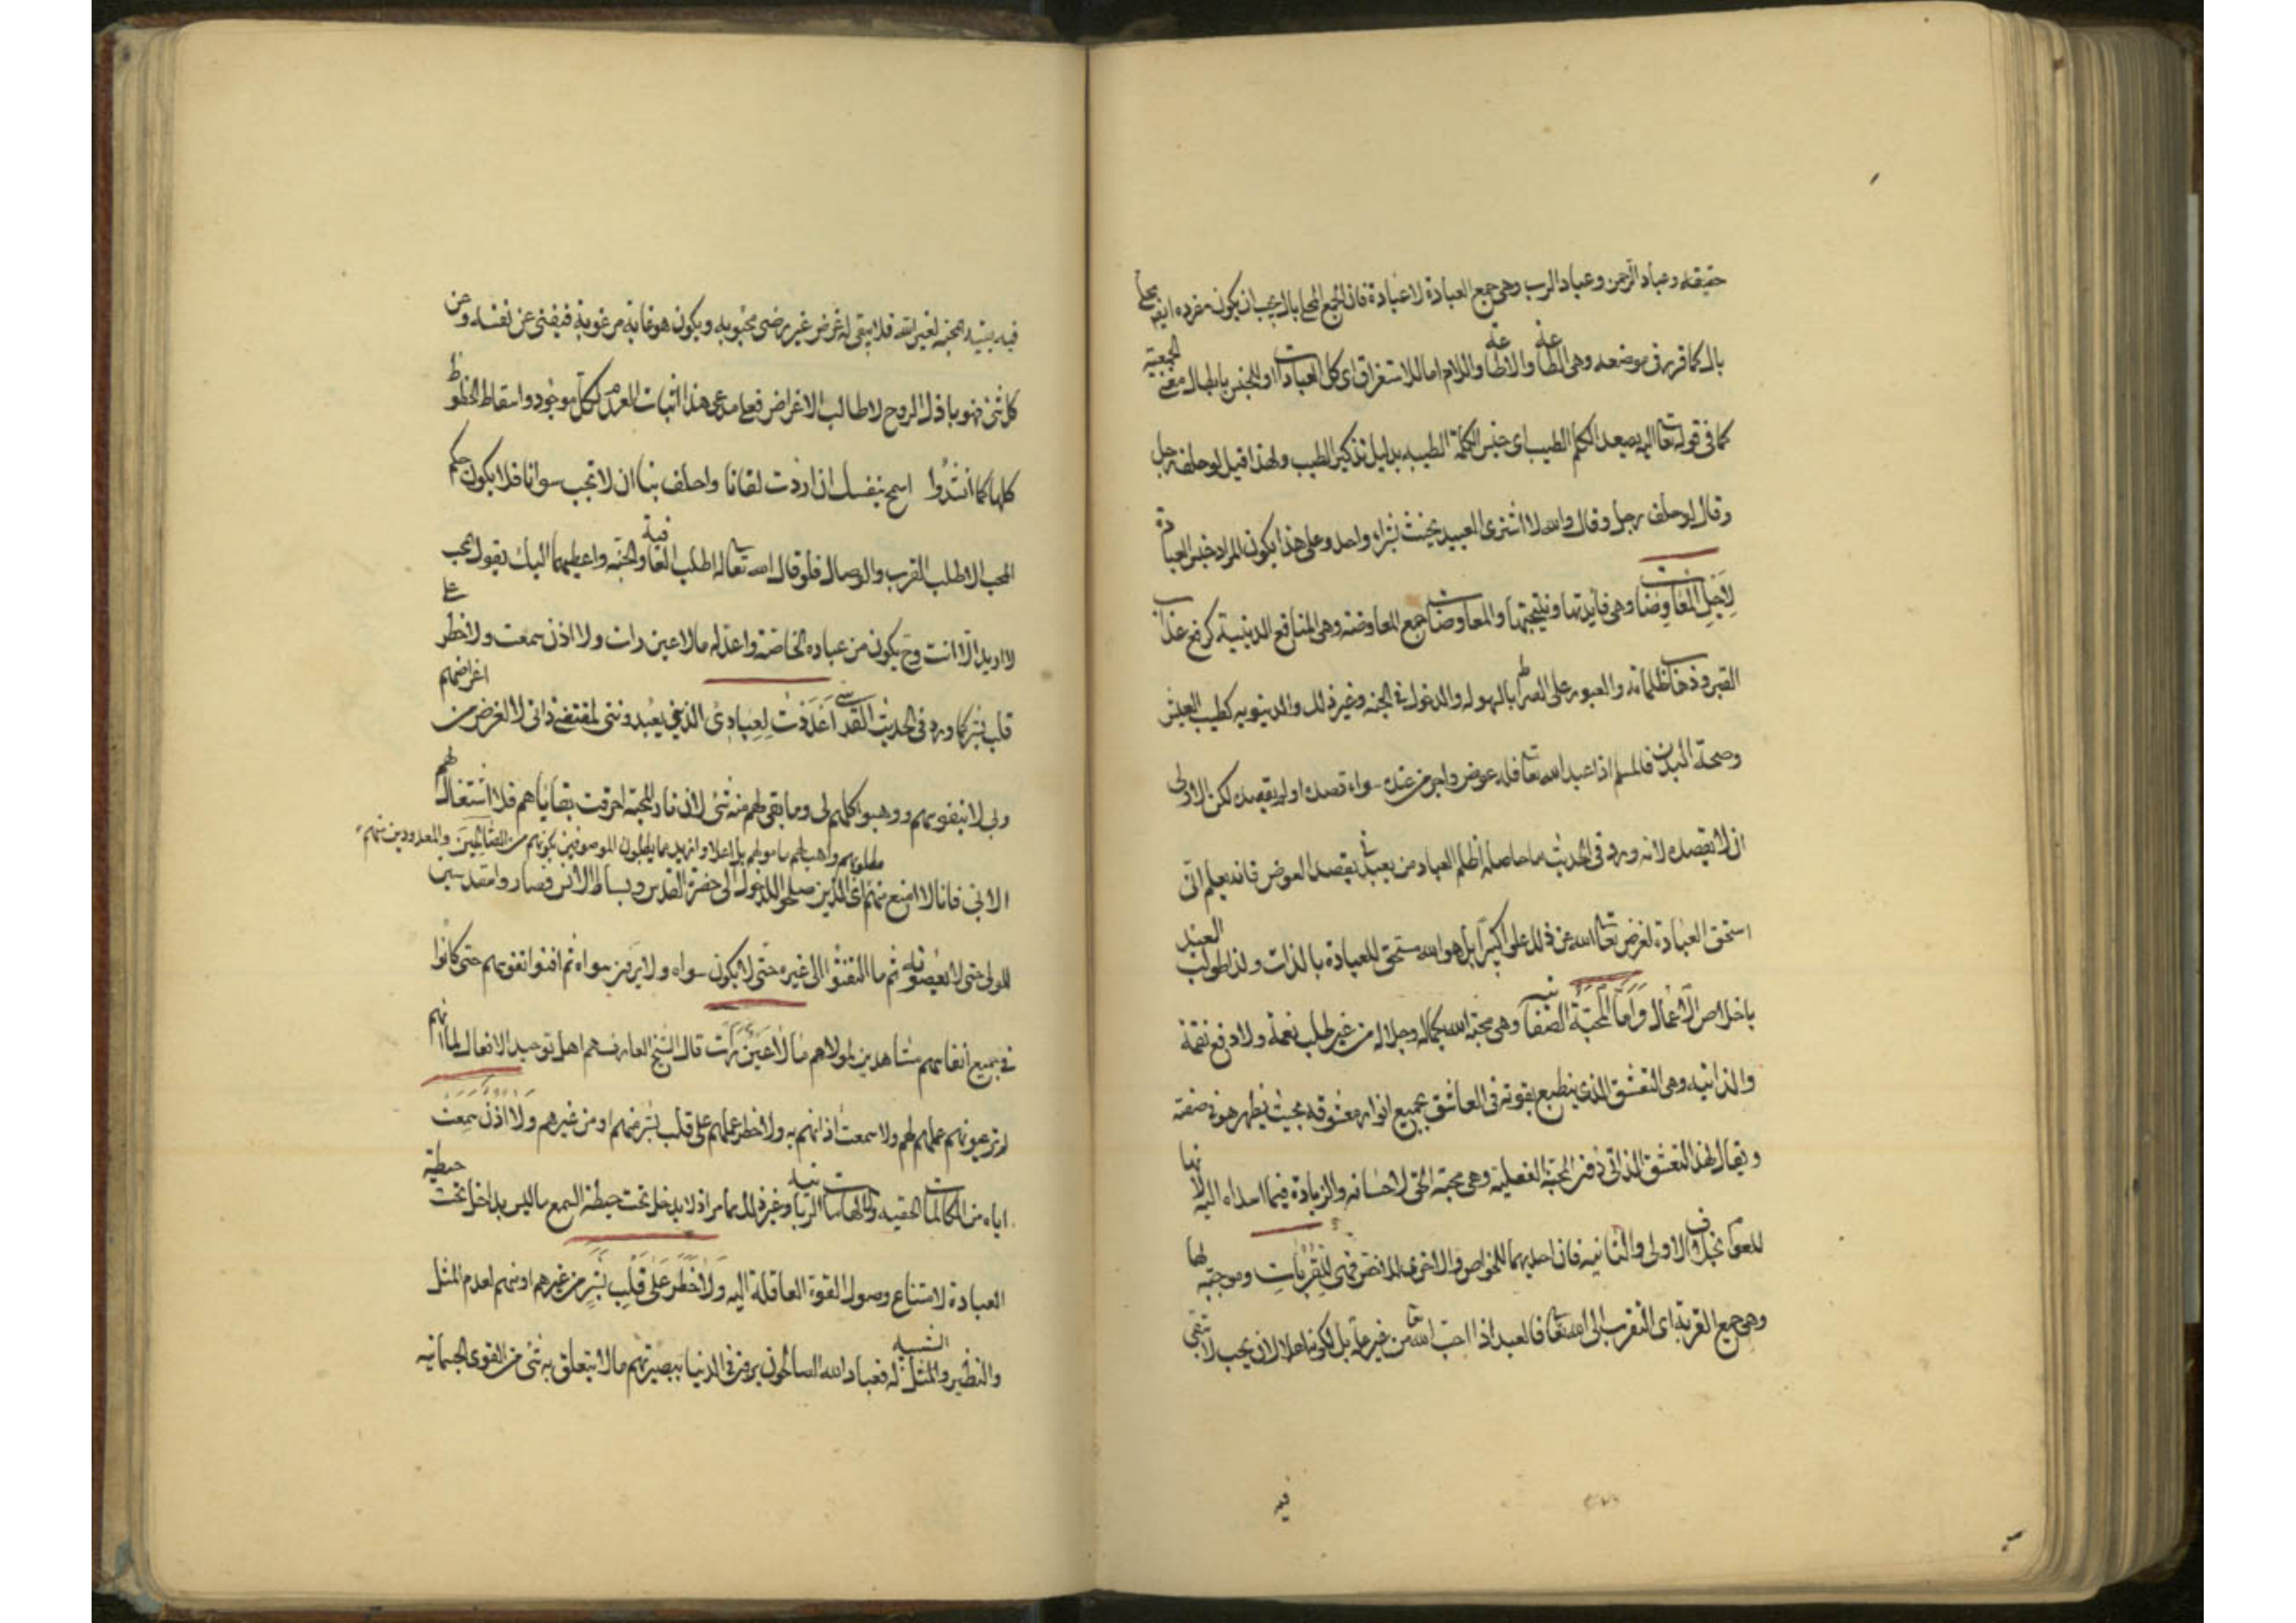 حقيقة وعباد الرحمن وعباد الرب وهى جمع العبادة لا عبادة فان الجمع المحلى بال يجب ان يكون مفرده ايضا محلى
بال كما قرر فى موضعه وهى الطاعة والاطاعة واللام اما للاستغراق اى كل العبادات او للجنس بابطال معنى الجمعية
كما فى قوله تعالى اليه يصعد الكلم الطيب اى جنس الكلمة الطيبة بدليل تذكير الطيب ولهذا قيل لو حلف رجل
وقال لو حلف رجل وقال والله لا اشترى العبيد يحنث بشراء واحد وعلى هذا يكون المراد جنس العبادة
لِاَجْلِ المُعَاوِضَات وهى فايدتها ونتيجتها والمعاوضات جمع المعاوضه وهى المنافع الدينية كرفع عذاب
القبر و ظلماته والعبور على الصراط بالهوله والدخول فى الجنه وغير ذلك والدنيويه كطيب العيش
وصحة البدن فالمسلم اذا عبد الله تعا فله عوض واجر من عنده سواء قصده او لم يقصده لكن الاولى
ان لا يقصده لانه ورد فى الحديث ما حاصله اظلم العباد من يعبدنى بقصد العوض فانه يعلم انى
استحق العبادة لغرض تعالى الله عن ذلك علوا كبيرا بل هو الله مستحق للعبادة بالذات ولذا طولب العبد
باخلاص الاعمال وَاَمَّا المَحَبَّة الصفاتيه وهى محبة الله بجماله وجلاله من غير طلب نعمة ولا دفع نقمة
والذاتيه وهى التعشق الذى ينطبع بقوته فى العاشق بجميع انوار معشوقه بحيث يظهر هو فى صفته
ويقال لهذا التعشق الذاتى المحبة الفعلية وهى محبة الحق لاحسانه والزيادة فيما اسداه اليه لانها
للعوام بخلاف الاولى والثانيه فان احديهما للخواص والاخرى للاخص فهى لِلْقُرُبَاتِ وموجبة لها
وهى جمع القربة اى التقرب الى الله تعا فالعبد اذا احب الله تعا من غير علة بل لكونه اهلا لان يحب لا تبقى
فيه
فيه المحبة لغير الله فلا يبقى له غرض غير رضى محبوبه ويكون هو غاية مرغوبة فيفنى عن نفسه وعن
كل شئ فهو باذل الروح لا طالب الاغراض فعلى مدعى هذا اثبات العدم لكل موجود واسقاط الحظوظ
كلها كما انشدوا اسمح بنفسك ان اردت لقانا واحلف بنا ان لا تحب سوانا فلا يكون حكم
المحب الا طلب القرب والوصال فلو قال الله تعالى له اطلب العافية والجنة واعطيهما اليك يقول المحب
لا اريد الا انت وح يكون من عباده الخاصة واعد له ما لا عين رات ولا اذن سمعت ولا خطر على
قلب بشر كما ورد فى الحديث القدسى اَعْدَدْتُ لِعِبَادِىَ الذين يعبدوننى لمقتضى ذاتى لا لغرض من اغراضهم
ولى لا لنفوسهم ووهبوا كلهم لى وما بقى لهم منه شئ لان نار المحبة احرقت بقاياهم فلا اشتغال لهم
مطلوبهم واهب لهم مامولهم بل اعلا وازيد مما يطلبون الموصوفين بكونهم من الصَّالِحِينَ والمعدودين منهم
الا بى فانا لا امنع منهم اى الذين صلحوا للدخول الى حضرة القدس وبساط الانس فصاروا مقدسين
للمولى حتى لا يعصونه ثم ما التفتوا الى غيره حتى لا يكون سواه ولا يرون سواه ثم افنوا نفوسهم حتى كانوا
فى جميع انفاسهم مشاهدين لمولاهم مَا لَا عَيْنٌ رَأَت قال الشيخ العارف هم اهل توحيد الافعال لما انهم
لم تر عيونهم عملهم لهم ولا سمعت اذانهم به ولا خطر عملهم على قلب بشر منهم او من غيرهم وَلَا اُذُنٌ سَمِعَتْ
اياه من المكالمات الحقيه والالهامات الربانيه وغير ذلك مما مر اذ لا يدخل تحت حيطة السمع ما ليس بداخل تحت حيطة
العبادة لامتناع وصول القوة العاقلة اليه وَلَا خَطَرَ عَلَى قَلْبِ بَشَرٍ من غيرهم او منهم لعدم المثل
والنظير والمثل الشبيه له فعباد الله الصالحون يرون فى الدنيا ببصيرتهم ما لا يتعلق به شئ من القوى الجسمانيه